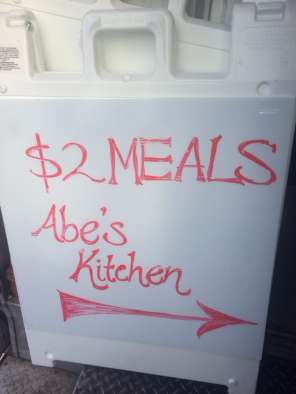 $2 MEALS
Abe's
Kitchen